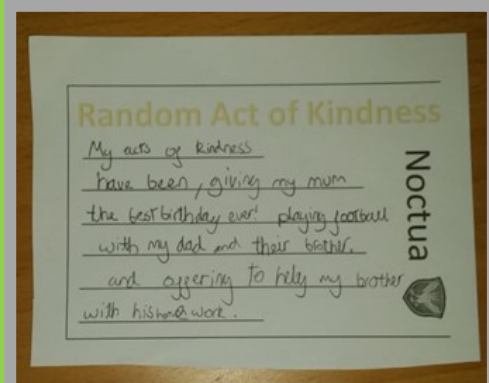 Random Act of Kindness
My acts of kindness
have been, giving my mum
the best birthday ever! playing football
with my dad and their brother.
and offering to help my brother
with his home work.
Noctua